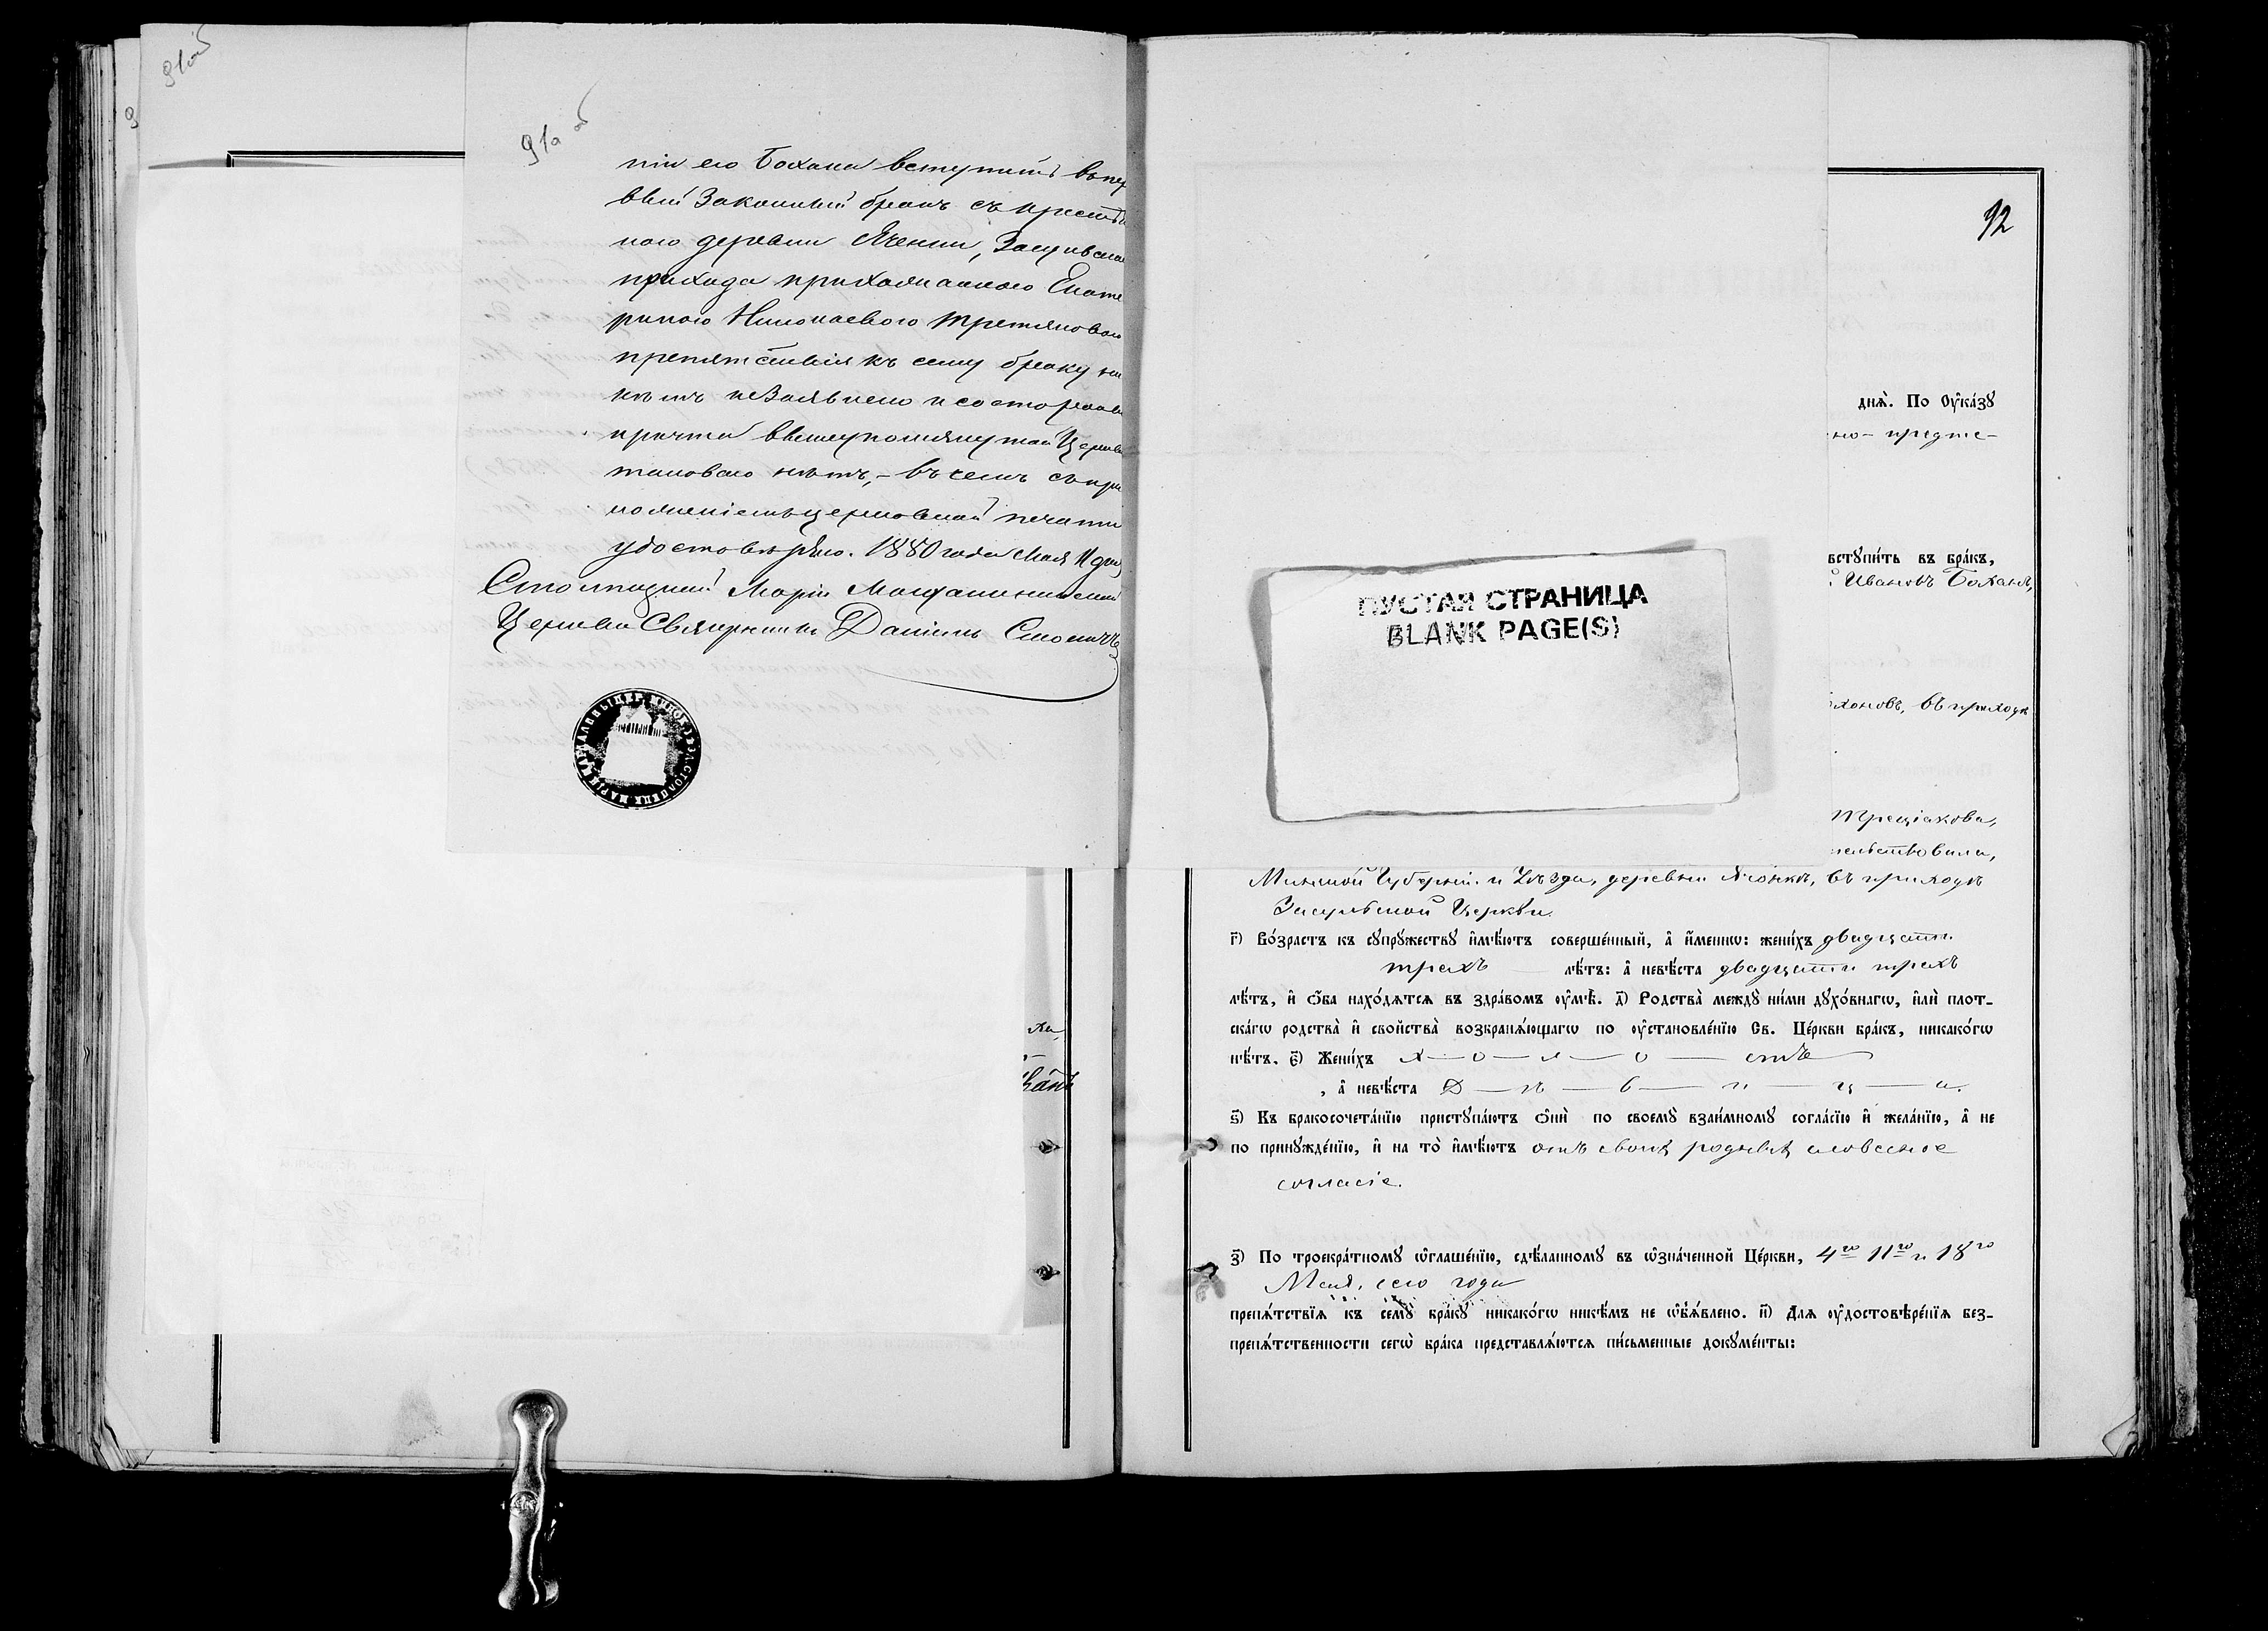 91об
91а об
9
ніи его Бохана вступить въ пер
вый Законный бракъ съ кресть
ного деревни Яченки, Засульска
прихода прихожанкою Екате
риною Николаевою Третяковою
препятствія къ сему браку ни
кѣмъ не Заявлено и со стороны
причта вышеупомянутой Церкви
таковаго нѣтъ,- въ чемъ съ при
ложеніемъ церковной печати
удостовѣряю. 1880 года Мая 11 дня
Столпецкой Маріи Магдалинской
Церкви Священникъ Даніилъ
92
днѧ̀. По Оу҆ка́зꙋ
но- предте-
встꙋпи́ть въ бра́къ,
Ивановъ Боханъ,
хановъ, въ приходѣ
ПУСТАЯ СТРАНИЦА
BLANK PAGE(S)
Трецякова,
тельствовала,
Минской Губерніи и Уѣзда, деревни Ячонкѣ, въ приходѣ
Засульской Церкви.
г҃) Во́зрастъ къ сꙋпрꙋ́жествꙋ и҆мѣ́ютъ соверше́нный, а҆ и҆́меннѡ: жени́хъ двадцати
трехъ лѣ́тъ: а҆ невѣ́ста двадцати трехъ
лѣ́тъ, и҆ ѻ҆́ба нахо́дѧтсѧ въ здра́вомъ оу҆мѣ̀. д҃) Родства̀ междꙋ̀ ни́ми дꙋхо́внагѡ, и҆лѝ плот-
ска́гѡ родства̀ и҆ свойства̀ возбранѧ́ющагѡ по оу҆становле́нїю Св. Це́ркви бра́къ, никако́гѡ
нѣ́тъ. є҃) Жени́хъ х—о—л—о—стъ
, а҆ невѣ́ста д—ѣ—в—и—ц—а.
ѕ҃) Къ бракосочета́нїю пристꙋпа́ютъ ѻ҆нѝ по своемꙋ̀ взаи́мномꙋ согла́сїю и҆ жела́нїю, а҆ не
по принꙋжде́нїю, и҆ на то̀ и҆мѣ́ютъ отъ своихъ родныхъ словесное
согласіе.
з҃) По троекра́тномꙋ ѡ҆глаше́нїю, сдѣ́ланномꙋ въ ѡ҆зна́ченной Це́ркви, 4го 11го и 18го
Мая, сего года
препѧ́тствїѧ къ семꙋ̀ бра́кꙋ никако́гѡ никѣ́мъ не ѡ҆б̾ѧ́влено. и҃) Длѧ оу҆достовѣре́нїѧ без-
препѧ́тственности сегѡ̀ бра́ка представлѧ́ютсѧ пи́сьменные докꙋме́нты: